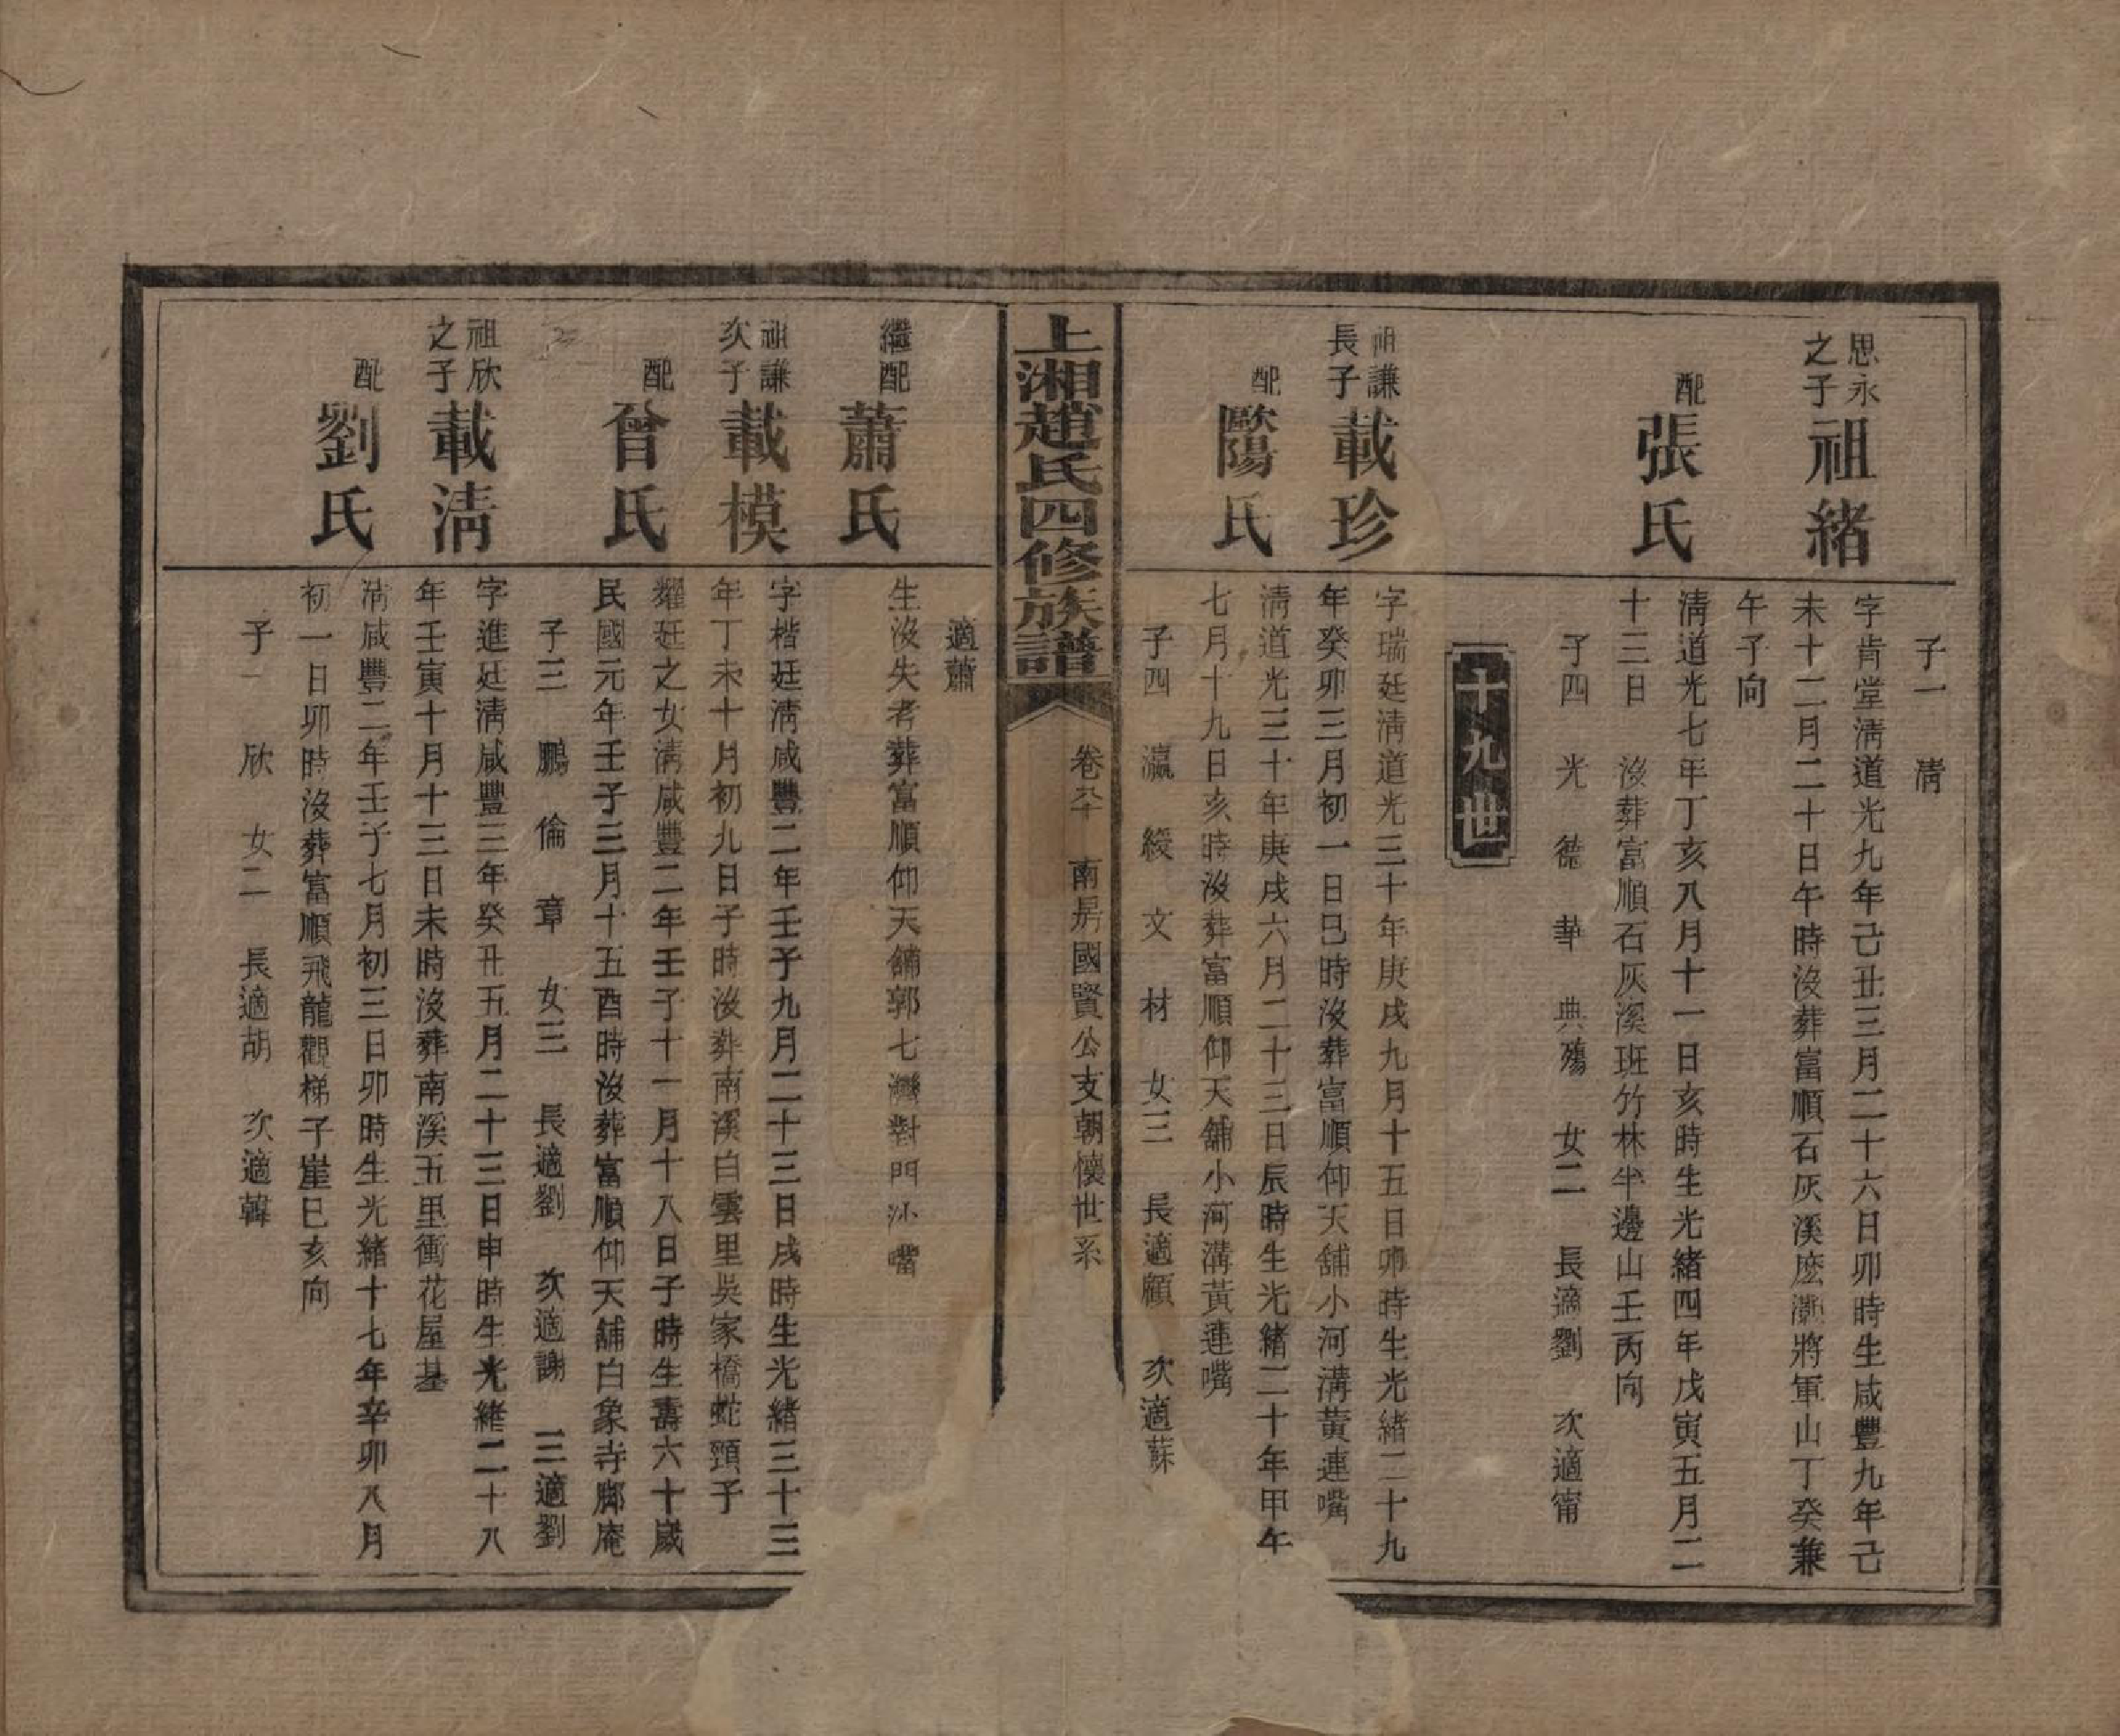 子一　淸
思永之子　祖緒
字肯堂淸道光九年己丑三月二十六日卯時生咸豐九年己
未十二月二十日午時沒葬富順石灰溪麽灝將軍山丁癸兼
午子向
配　張氏
淸道光七年丁亥八月十一日亥時生光緒四年戊寅五月二
十三日　沒葬富順石灰溪班竹林半邊山壬丙向
子四　光　德　華　典殤　女二　長適劉　次適甯
十九世
祖謙長子　載珍
字瑞廷淸道光三十年庚戌九月十五日卯時生光緒二十九
年癸卯三月初一日巳時沒葬富順仰天舖小河溝黃連嘴
配　歐陽氏
淸道光三十年庚戌六月二十三日辰時生光緒二十年甲午
七月十九日亥時沒葬富順仰天舖小河溝黃連嘴
子四　瀛　綬　文　材　女三　長適顧　次適蘇
上湘趙氏四修族譜
卷　南房國賢公支朝懷世系
適蕭
繼配　蕭氏
生沒失考葬富順仰天舖郭七灣對門沁嘴
祖謙次子　載模
字楷廷淸咸豐二年壬子九月二十三日戌時生光緒三十三
年丁未十月初九日子時沒葬南溪白雲里吳家橋蛇頸子
配　曾氏
耀廷之女淸咸豐二年壬子十一月十八日子時生壽六十歲
民國元年壬子三月十五酉時沒葬富順仰天舖白象寺腳庵
子三　鵬　倫　章　女三　長適劉　次適謝　三適劉
祖欣之子　載淸
字進廷淸咸豐三年癸丑五月二十三日申時生光緒二十八
年壬寅十月十三日未時沒葬南溪五里衝花屋基
配　劉氏
淸咸豐二年壬子七月初三日卯時生光緒十七年辛卯八月
初一日卯時沒葬富順飛龍觀梯子崖巳亥向
子一　欣　女二　長適胡　次適韓